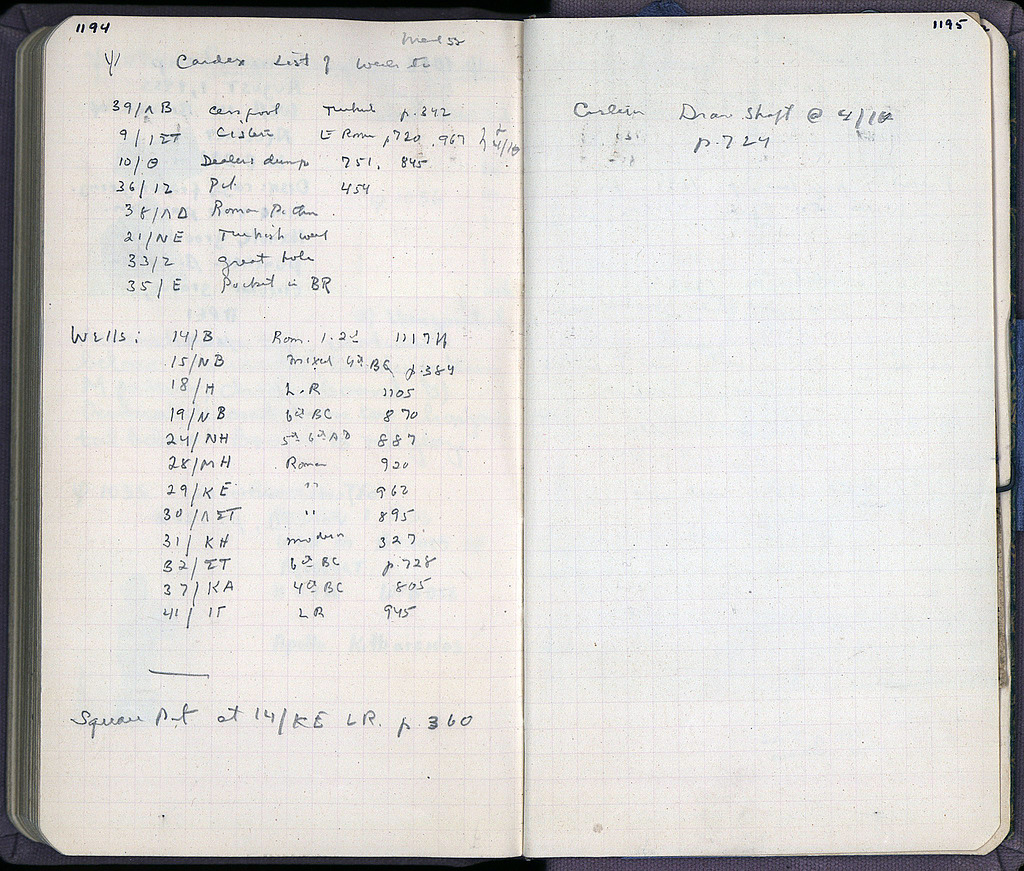 1194
Ψ Cardex List of Wells etc
39/ΛB cesspool Turkish p.342
9/ΙΣΤ Cistern LE Rom p720, 967
10/Θ Dealers dump 751, 845
36/12 Pit 454
38/ΛΔ Roman Pithos
21/NE Turkish well
33/Z great hole
35/E Pocket in BR
Wells: 14/B Rom. 1.2c 1117ff
15/NB mixed 4th BC p.384
18/H L.R 1105
19/NB 6th BC 870
24/NH 5th 6th AD 887
28/MH Roman 920
29/KE " 962
30/ΛΣΤ " 895
31/KH modern 327
32/ΣΤ 6th BC p.728
37/KA 4th BC 805
41/ΙΓ LR 945
Square Pit at 14/KE LR. p.360
1195
Cistern Draw shaft @ 4/ΙΘ
p.724